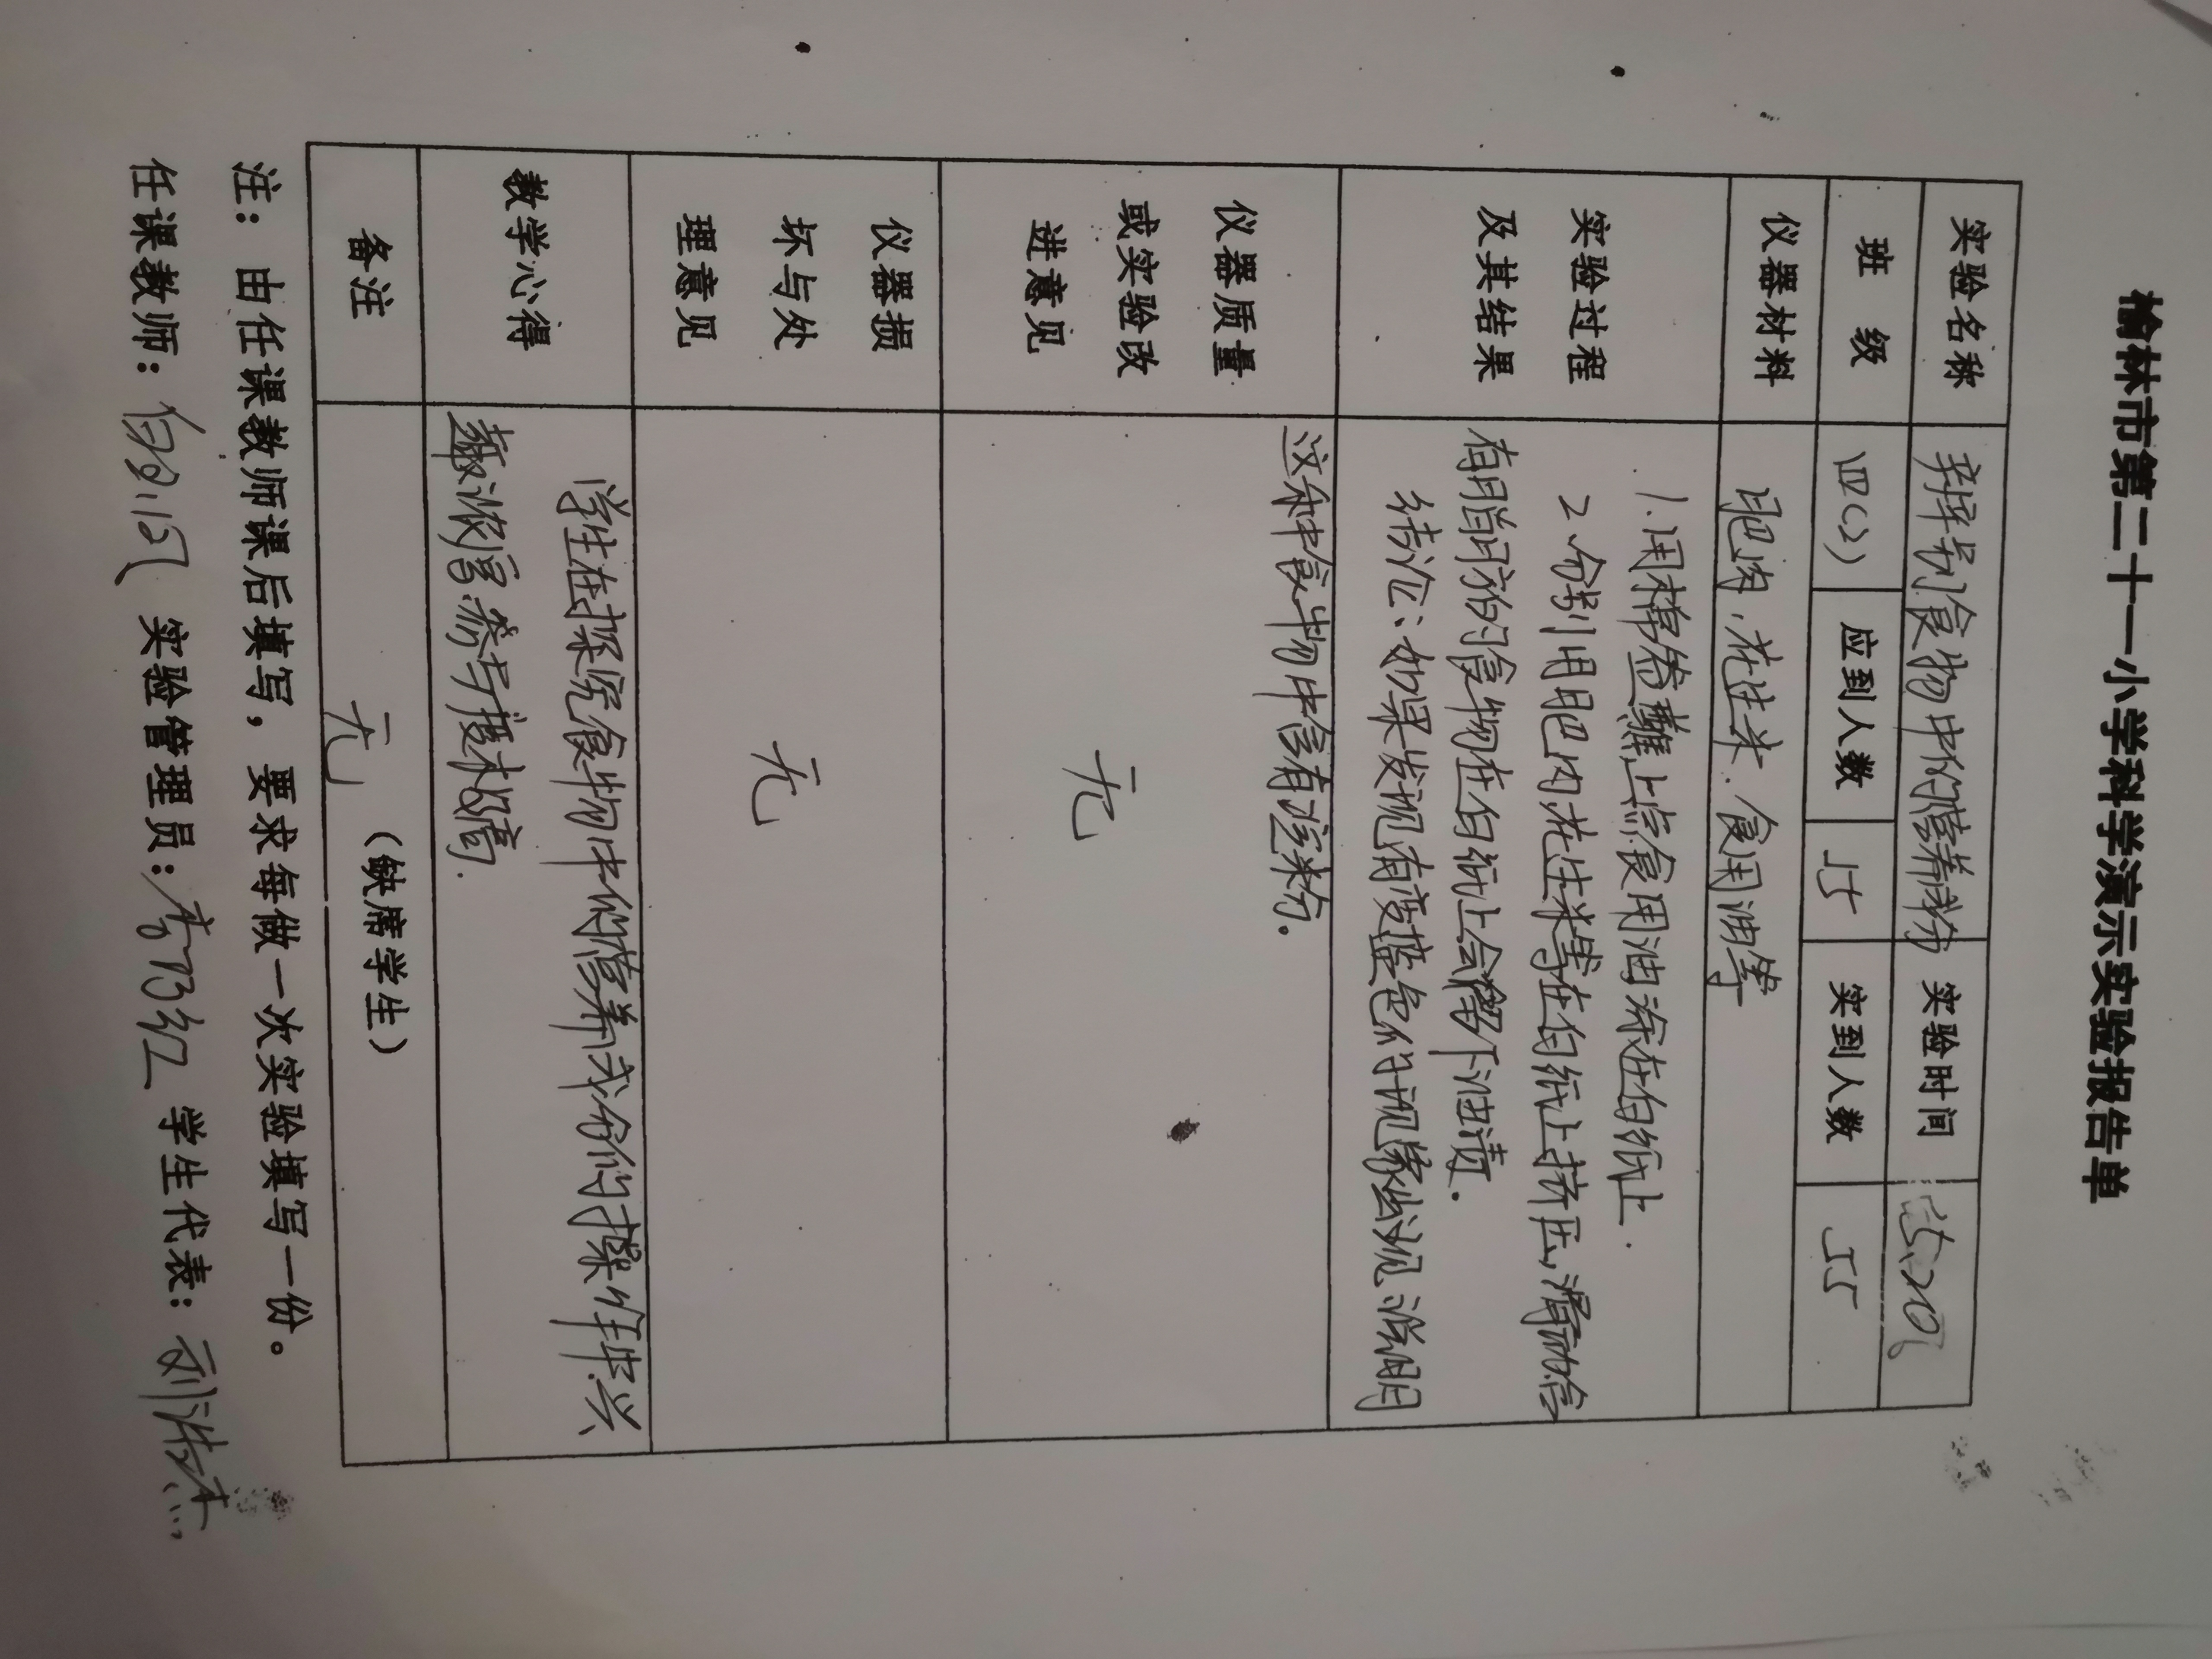 榆林市第二十一小学科学演示实验报告单
实验名称 辨别食物中的营养成分 实验时间
班 级 四(2) 应到人数 55 实到人数 55
仪器材料 肥肉、花生米、食用油等
实验过程
及其结果
1.用棉签蘸上点食用油涂在白纸上.
2.分别用肥肉花生米等在白纸上挤压,
有脂肪的食物在白纸上会留下油渍.
结论:如果发现有变蓝色的现象出现说明
这种食物中含有淀粉。
仪器质量
或实验改
进意见
无
仪器损
坏与处
理意见
无
教学心得
学生在探究食物中的营养成份的操作中兴
趣浓富.参与度极高.
备注 无 (缺席学生)
注:由任课教师课后填写,要求每做一次实验填写一份。
任课教师: 实验管理员: 学生代表:刘浩杰